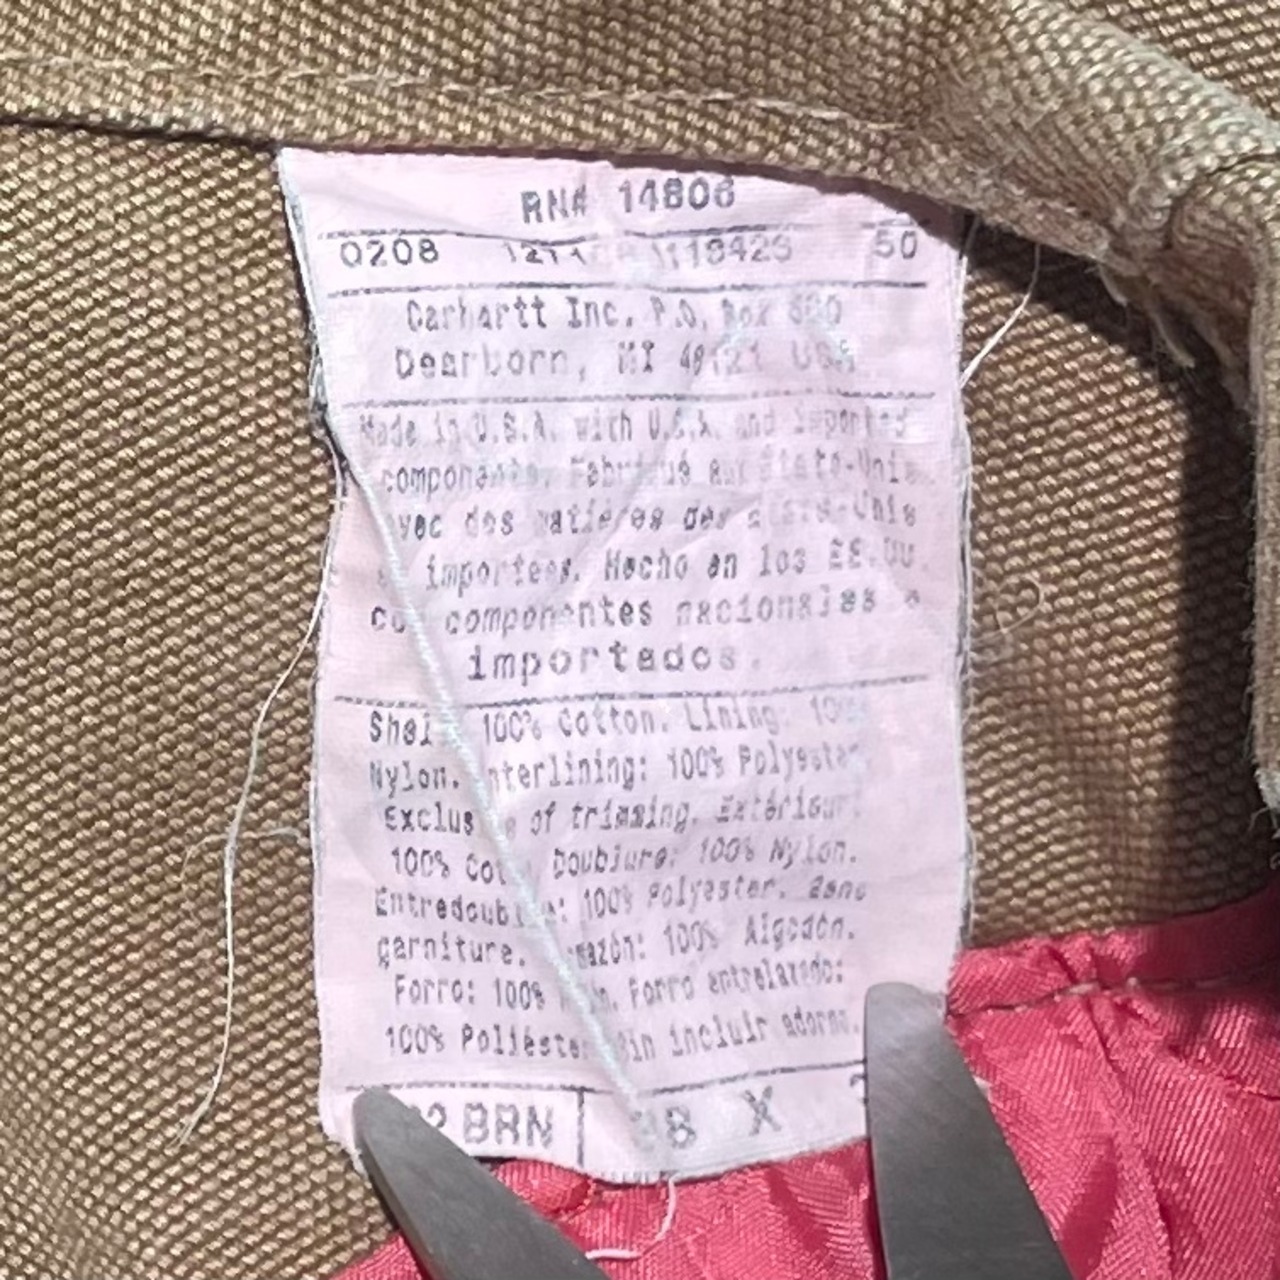 RN# 14806
0208 50
Carhartt Inc. P.O. Box
Dearborn, MI 48121 USA
Made in U.S.A. with U.S.A. and imported
components. Fabriqué aux États-Unis
avec des matières des États-Unis
importees. Hecho en los EE.UU.
componentes nacionales e
importados.
Shell: 100% Cotton. Lining: 100%
Nylon. Interlining: 100% Polyester
Exclusive of trimming. Extérieur:
100% Doublure: 100% Nylon.
Entredoublure: 100% Polyester. Sans
garniture. 100% Algodón.
Forro: 100% Forro entrelazado:
100% Poliéster Sin incluir adorno.
BRN X